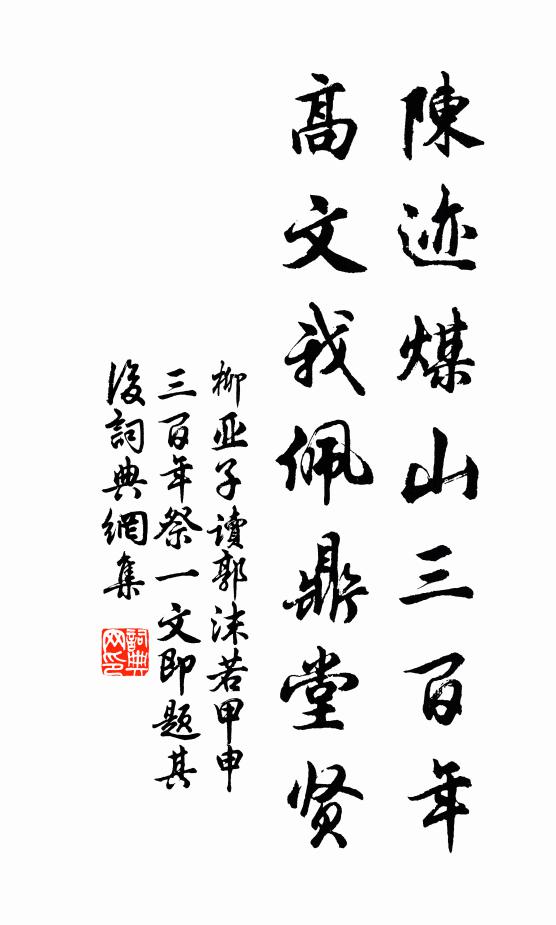 陳迹煤山三百年
高文我佩鼎堂贤
柳亚子讀郭沫若甲申
三百年祭一文即题其
後詞典網集
詞典网印